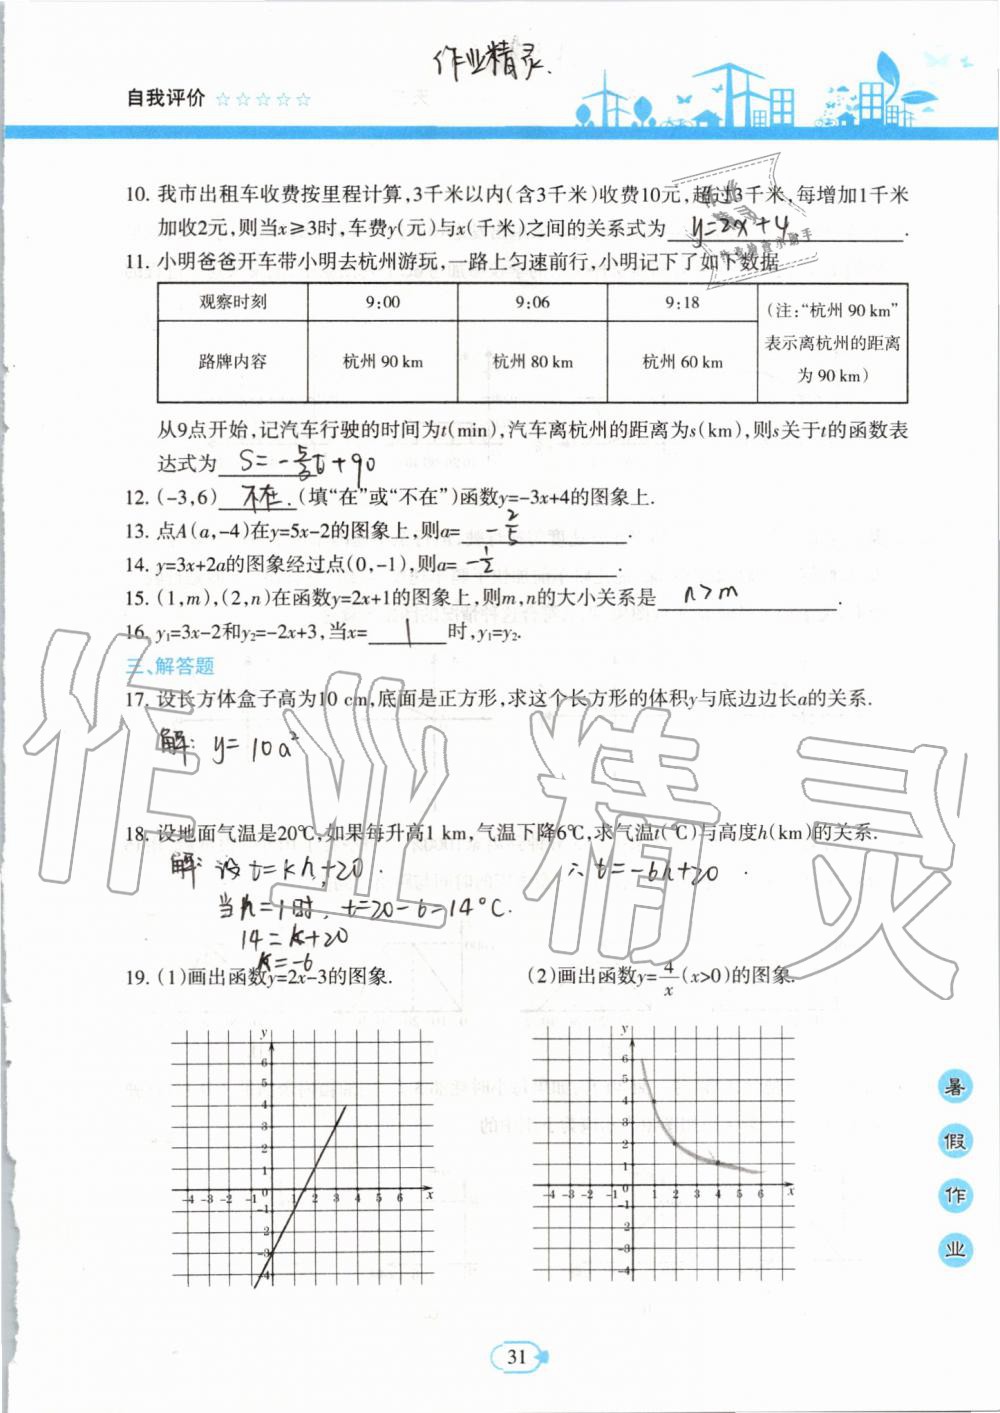 作业精灵.
自我评价 ☆☆☆☆☆
10. 我市出租车收费按里程计算,3千米以内(含3千米)收费10元,超过3千米,每增加1千米
加收2元,则当x≥3时,车费y(元)与x(千米)之间的关系式为 y=2x+4 .
11. 小明爸爸开车带小明去杭州游玩,一路上匀速前行,小明记下了如下数据
观察时刻 9:00 9:06 9:18 (注:“杭州 90 km”
表示离杭州的距离
为 90 km)
路牌内容 杭州 90 km 杭州 80 km 杭州 60 km
从9点开始,记汽车行驶的时间为t(min),汽车离杭州的距离为s(km),则s关于t的函数表
达式为 S=-5/3t+90
12. (-3,6) 不在. (填“在”或“不在”)函数y=-3x+4的图象上.
13. 点A(a,-4)在y=5x-2的图象上,则a= -2/5 .
14. y=3x+2a的图象经过点(0,-1),则a= -1/2 .
15. (1,m),(2,n)在函数y=2x+1的图象上,则m,n的大小关系是 n>m .
16. y₁=3x-2和y₂=-2x+3,当x= 1 时,y₁=y₂.
三、解答题
17. 设长方体盒子高为10 cm,底面是正方形,求这个长方形的体积y与底边边长a的关系.
解: y=10a²
18. 设地面气温是20℃,如果每升高1 km,气温下降6℃,求气温t(℃)与高度h(km)的关系.
解: 设t=kh+20. ∴t=-6h+20.
当h=1时, t=20-6=14°C.
14=k+20
k=-6
19. (1)画出函数y=2x-3的图象. (2)画出函数y=4/x(x>0)的图象.
y
6
5
4
3
2
1
-4 -3 -2 -1 0 1 2 3 4 5 6 x
-1
-2
-3
-4
y
6
5
4
3
2
1
-4 -3 -2 -1 0 1 2 3 4 5 6 x
-1
-2
-3
-4
暑
假
作
业
31
作业精灵